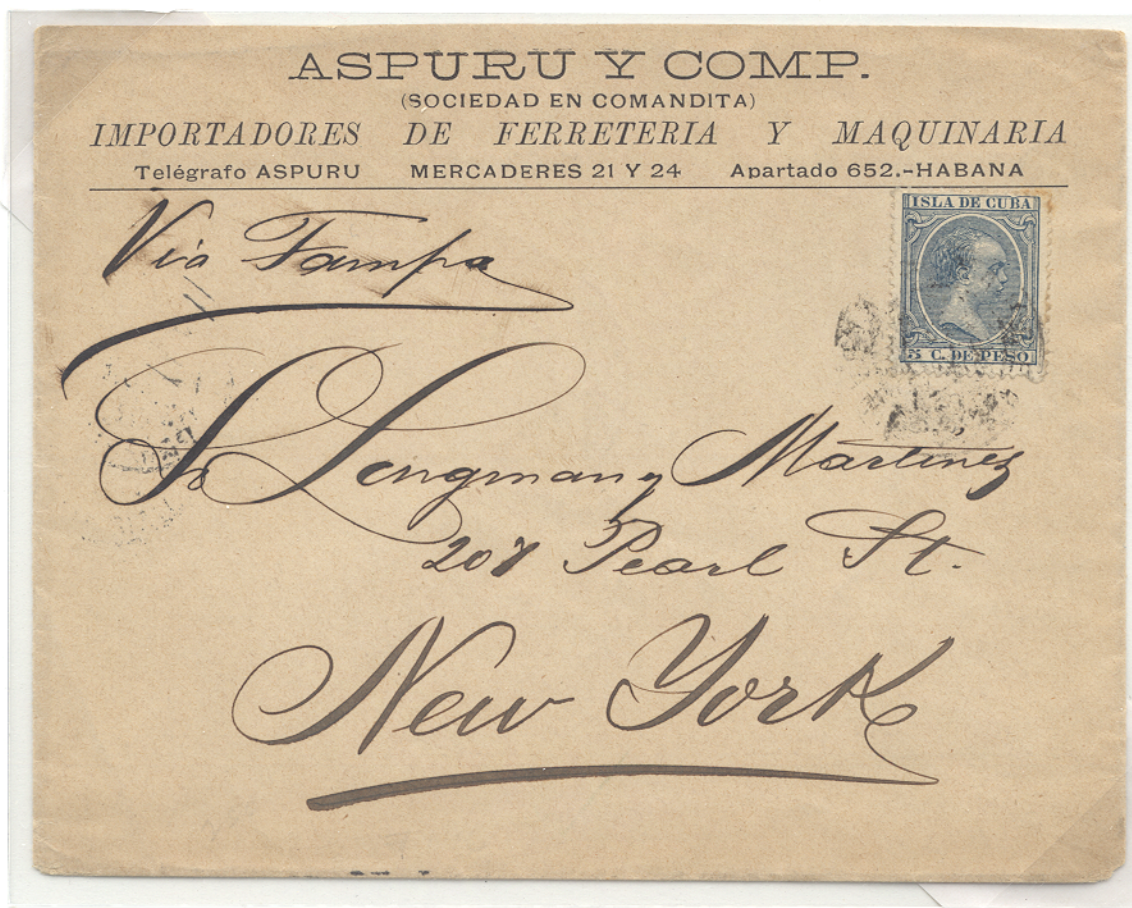 ASPURU Y COMP.
(SOCIEDAD EN COMANDITA)
IMPORTADORES DE FERRETERIA Y MAQUINARIA
Telégrafo ASPURU MERCADERES 21 Y 24 Apartado 652.-HABANA
ISLA DE CUBA
5 C. DE PESO
Via Tampa
Sr Lengman y Martinez
207 Pearl St.
New York